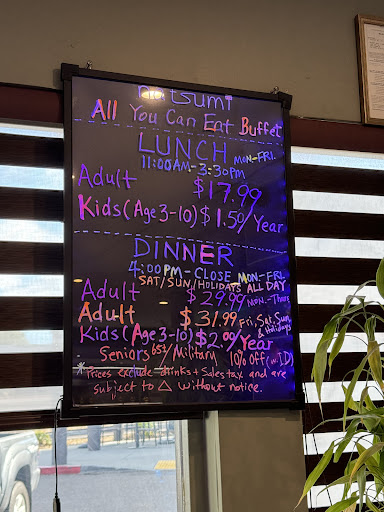 natsumi
All You Can Eat Buffet
LUNCH MON-FRI.
11:00AM-3:30PM
Adult $17.99
Kids (Age 3-10) $1.50/Year
DINNER
4:00PM-CLOSE MON-FRI
SAT/SUN/HOLIDAYS ALL DAY
Adult $29.99 MON.-Thurs
Adult $31.99 Fri, Sat, Sun & Holidays
Kids (Age 3-10) $2.00/Year
Seniors 65+/Military 10% Off (w.ID)
*Prices exclude drinks + Sales tax and are
subject to △ without notice.